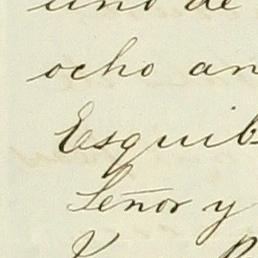 uno de
ocho an
Esquib
Señor y